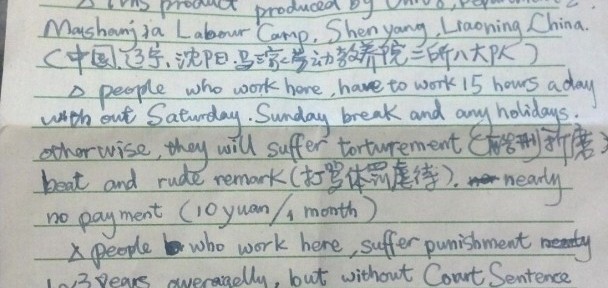 this product produced by Unit 8, Department 2,
Mashanjia Labour Camp, Shenyang, Liaoning China.
(中国,辽宁,沈阳,马三家劳动教养院二所八大队)
△ people who work here, have to work 15 hours a day
with out Saturday. Sunday break and any holidays.
otherwise, they will suffer torturement (折磨)
beat and rude remark (打骂体罚虐待). nearly
no payment (10 yuan/1 month)
X people who work here, suffer punishment nearly
1~3 years averagelly, but without Court Sentence